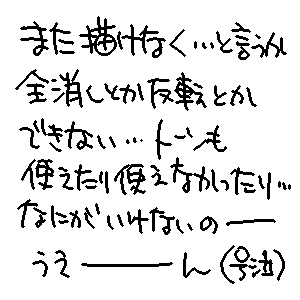 また描けなく…と言うか
全消しとか反転とか
できない…トーンも
使えたり使えなかったり…
なにがいけないのー
うえーーん(号泣)